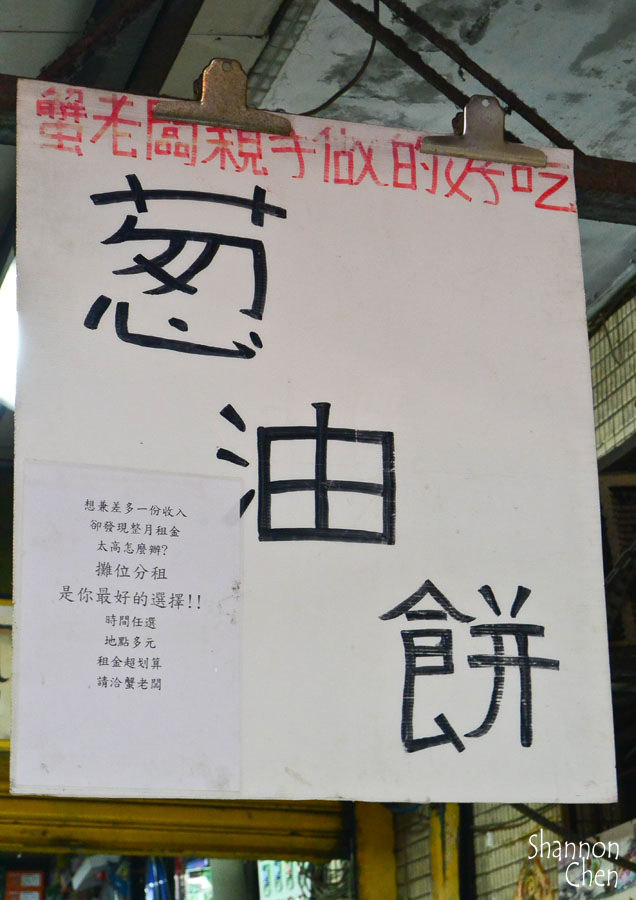 蟹老闆親手做的好吃
葱
油
餅
想兼差多一份收入
卻發現整月租金
太高怎麼辦?
攤位分租
是你最好的選擇!!
時間任選
地點多元
租金超划算
請洽蟹老闆
Shannon
Chen